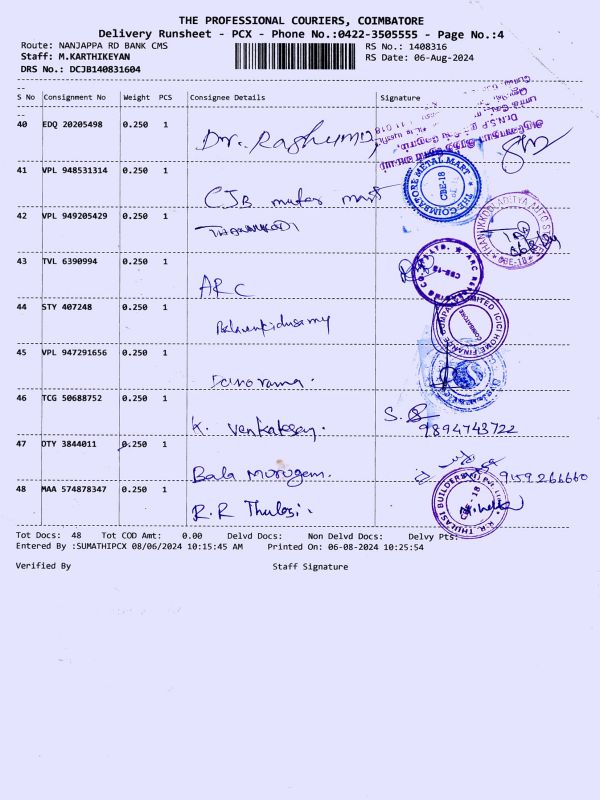 THE PROFESSIONAL COURIERS, COIMBATORE
Delivery Runsheet - PCX - Phone No.:0422-3505555 - Page No.:4
Route: NANJAPPA RD BANK CMS RS No.: 1408316
Staff: M.KARTHIKEYAN RS Date: 06-Aug-2024
DRS No.: DCJB140831604
S No Consignment No Weight PCS Consignee Details Signature
40 EDQ 20205498 0.250 1
41 VPL 948531314 0.250 1
CJB
THE COIMBATORE METAL MART
CBE-18
42 VPL 949205429 0.250 1
CBE-18
43 TVL 6390994 0.250 1
ARC
CBE-18
44 STY 407248 0.250 1
ICICI HOME FINANCE COMPANY LIMITED
COIMBATORE
45 VPL 947291656 0.250 1
46 TCG 50688752 0.250 1
K. Venkatesan.
9894743722
47 DTY 3844011 0.250 1
Bala Murugan.
9159266660
48 MAA 574878347 0.250 1
R.R Thulasi.
K.R. THULASI BUILDERS (I) Pvt. Ltd.
CBE - 18
Tot Docs: 48 Tot COD Amt: 0.00 Delvd Docs: Non Delvd Docs: Delvy Pts:
Entered By :SUMATHIPCX 08/06/2024 10:15:45 AM Printed On: 06-08-2024 10:25:54
Verified By Staff Signature